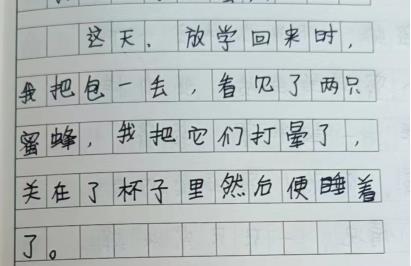 这天，放学回来时，
我把包一丢，看见了两只
蜜蜂，我把它们打晕了，
关在了杯子里然后便睡着
了。